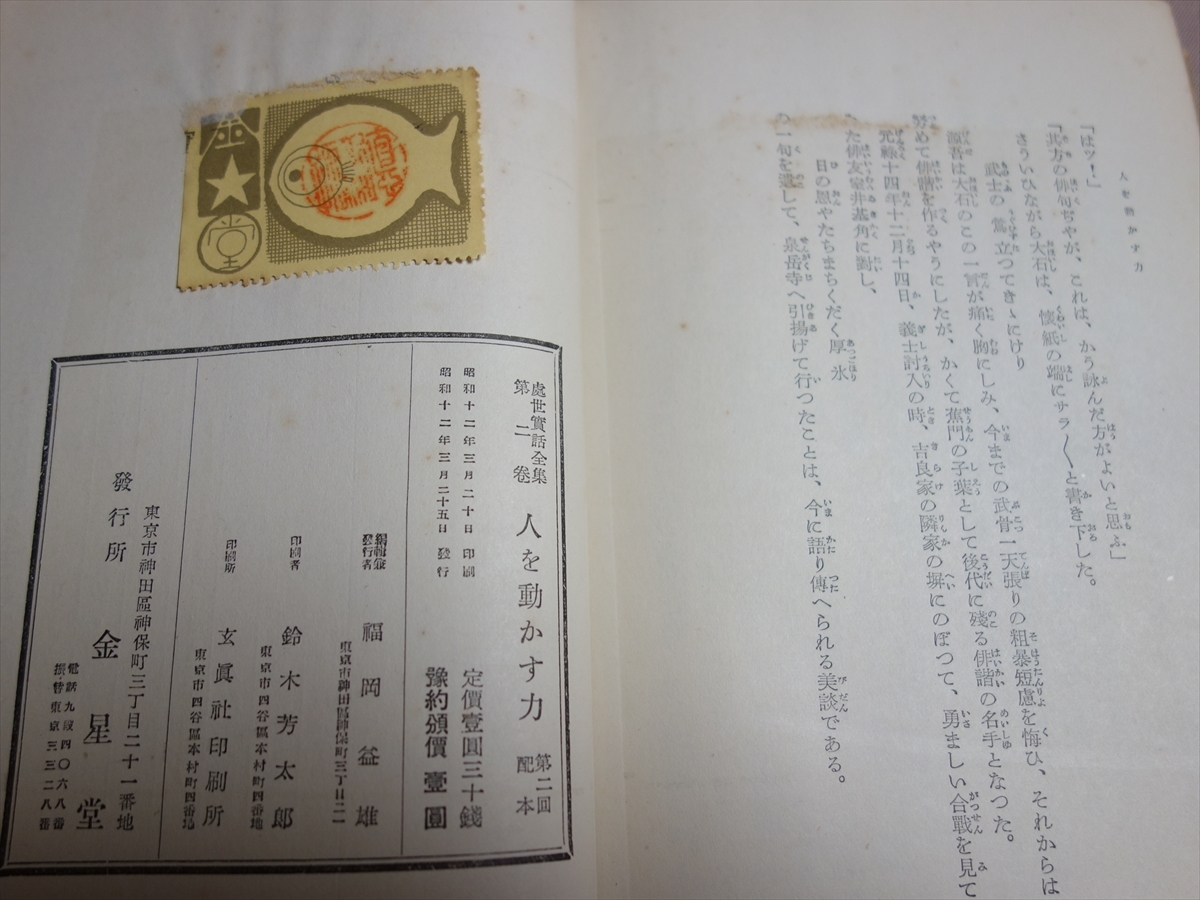 人を動かす力
「はツ！」
「其方の俳句ぢやが、これは、かう詠んだ方がよいと思ふ」
さういひながら大石は、懷紙の端にサラ〱と書き下した。
武士の鶯立つてきゝにけり
源吾は大石のこの一言が痛く胸にしみ、今までの武骨一天張りの粗暴短慮を悔ひ、それからは
努めて俳諧を作るやうにしたが、かくて蕉門の子葉として後代に殘る俳諧の名手となつた。
元祿十四年十二月十四日、義士討入の時、吉良家の隣家の塀にのぼつて、勇ましい合戰を見て
た俳友室井基角に對し、
日の恩やたちまちくだく厚氷
の一句を遺して、泉岳寺へ引揚げて行つたことは、今に語り傳へられる美談である。
金
★
堂
處世實話全集
第二卷
人を動かす力
第二回
配本
昭和十二年三月二十日印刷
昭和十二年三月二十五日發行
定價壹圓三十錢
豫約頒價壹圓
編輯兼
發行者
福岡益雄
東京市神田區神保町三丁目二一
印刷者
鈴木芳太郎
東京市四谷區本村町四番地
印刷所
玄眞社印刷所
東京市四谷區本村町四番地
東京市神田區神保町三丁目二十一番地
發行所
金星堂
電話九段四〇六八番
振替東京三三二八番